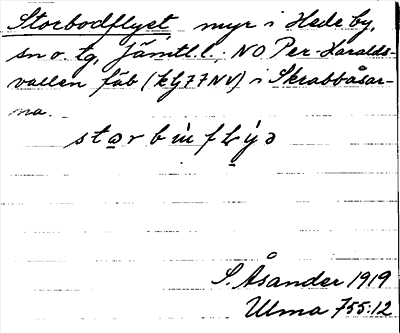 Storbodflyet myr i Hede by,
sn o. tg, Jämtl. l., NO Per-Haralds-
vallen fäb (kLj77NV) i Skrabbåsar-
na.
starbùflýə
S. Åsander 1919
Ulma 755:12